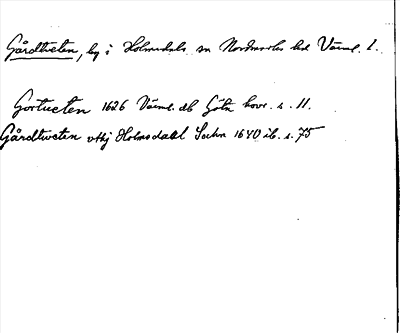 Gårdtveten, by i Holmedals sn Nordmarks hd Värml. l.
Gortueten 1626 Värml. db Göta hovr. s. 11.
Gårdtweten vthj Holmsdall Sochn 1640 ib. s. 75